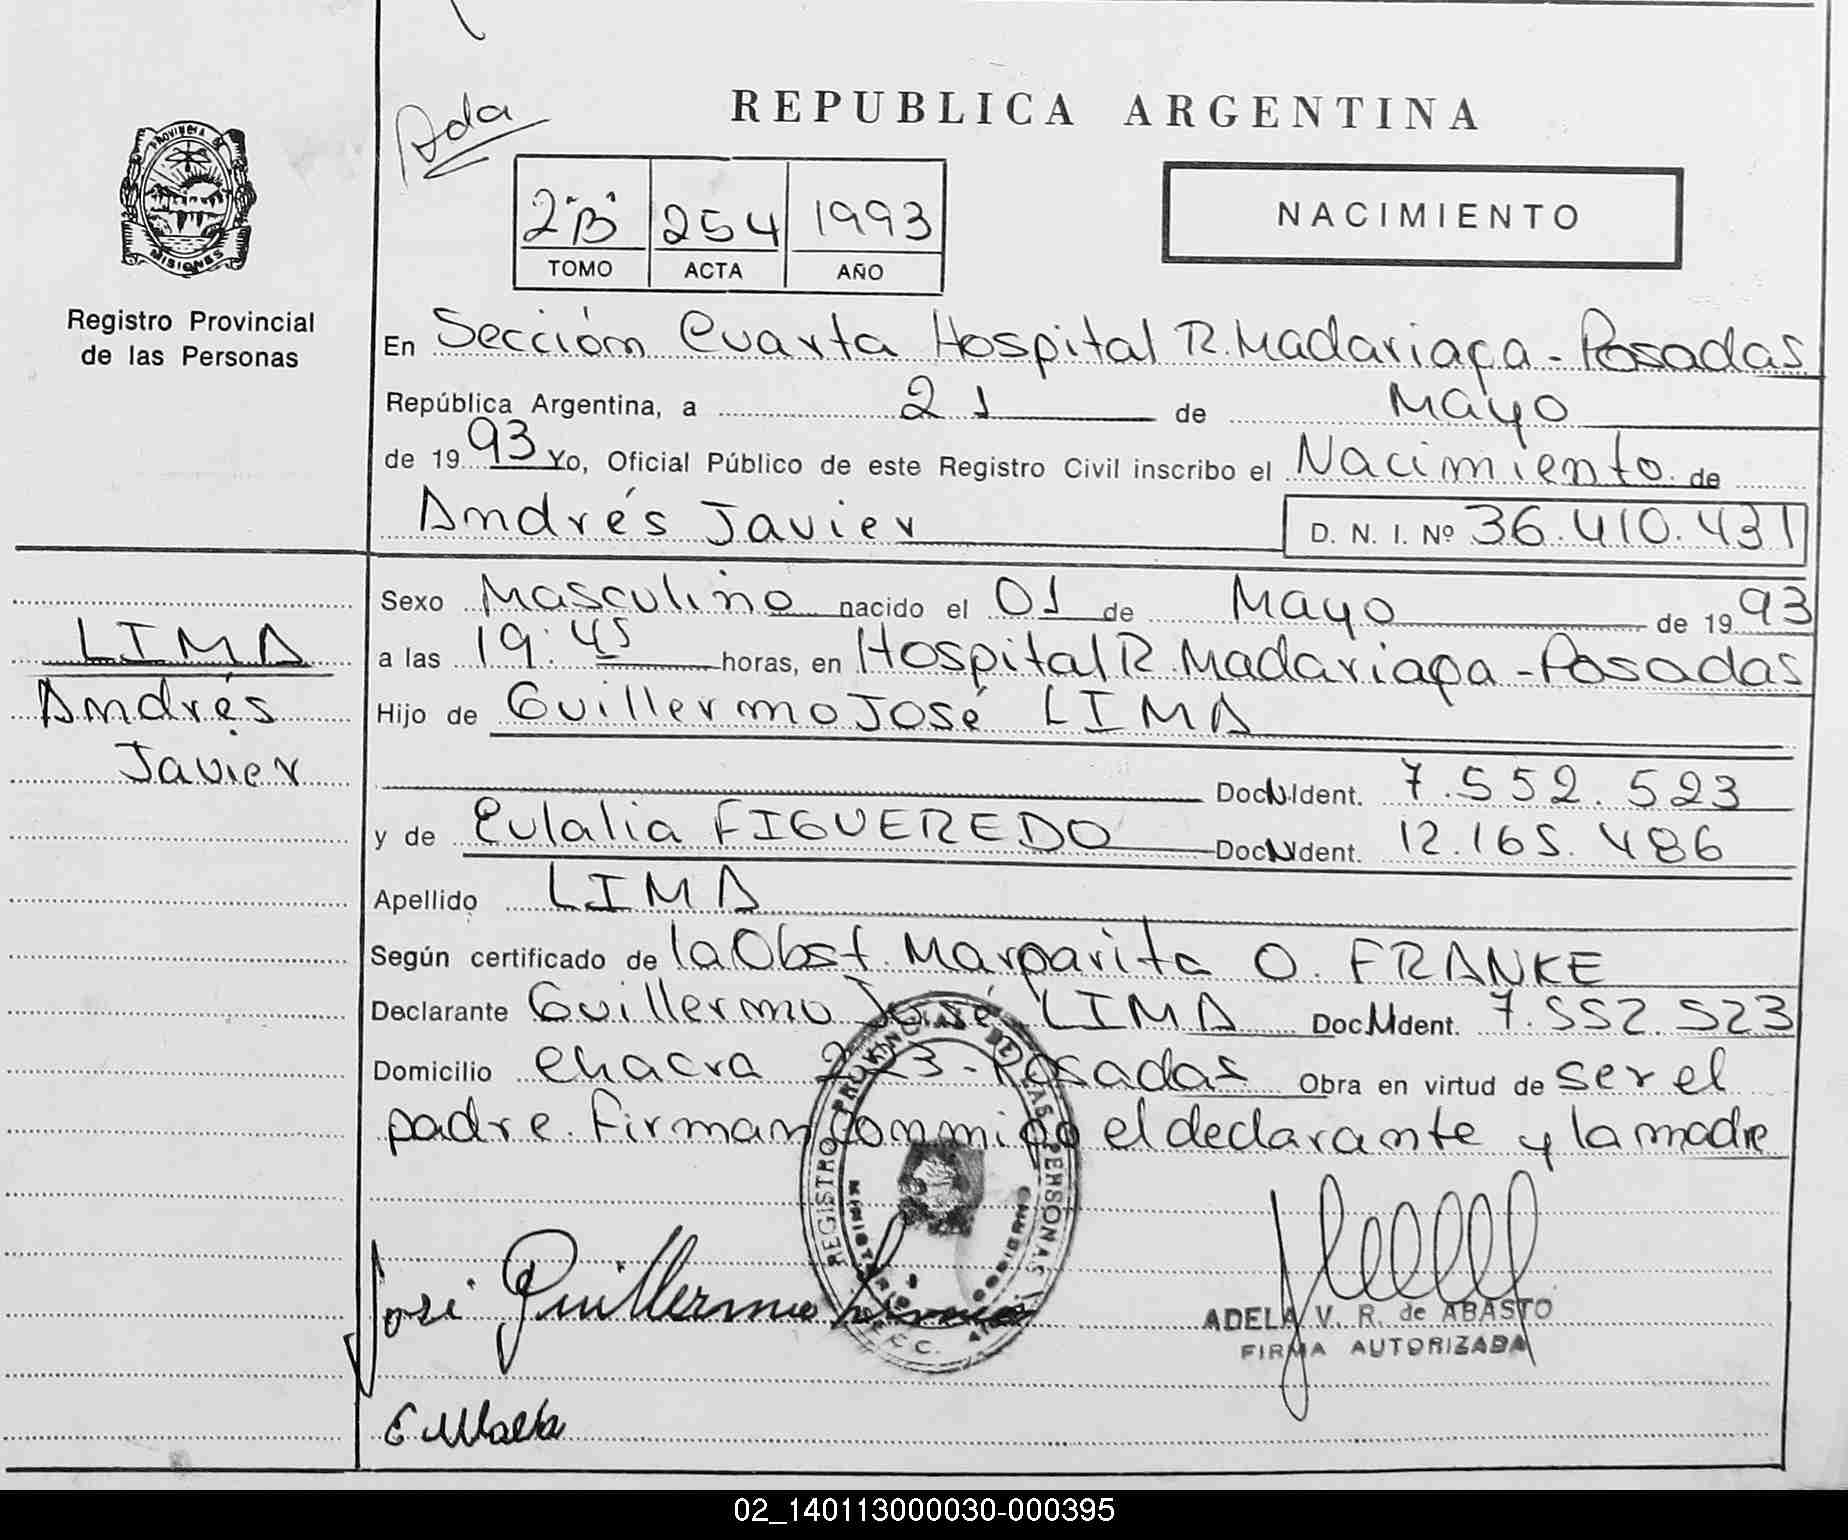 Ada
REPUBLICA ARGENTINA
PROVINCIA DE
MISIONES
Registro Provincial
de las Personas
2 "B" 254 1993
TOMO ACTA AÑO
NACIMIENTO
En Sección Cuarta Hospital R. Madariaga - Posadas
República Argentina, a 21 de Mayo
de 19 93 Yo, Oficial Público de este Registro Civil inscribo el Nacimiento de
Andrés Javier D. N. I. Nº 36.410.431
LIMA
Andrés
Javier
Sexo Masculino nacido el 01 de Mayo de 19 93
a las 19:45 horas, en Hospital R. Madariaga - Posadas
Hijo de Guillermo José LIMA
Doc N Ident. 7.552.523
y de Eulalia FIGUEREDO Doc N Ident. 12.165.486
Apellido LIMA
Según certificado de la Obst. Margarita O. FRANKE
Declarante Guillermo José LIMA Doc N Ident. 7.552.523
Domicilio Chacra 223 - Posadas Obra en virtud de ser el
padre. Firman conmigo el declarante y la madre
REGISTRO PROVINCIAL DE LAS PERSONAS
MINISTERIO GOBIERNO
José Guillermo Lima
ADELA V. R. de ABASTO
FIRMA AUTORIZADA
02_140113000030-000395